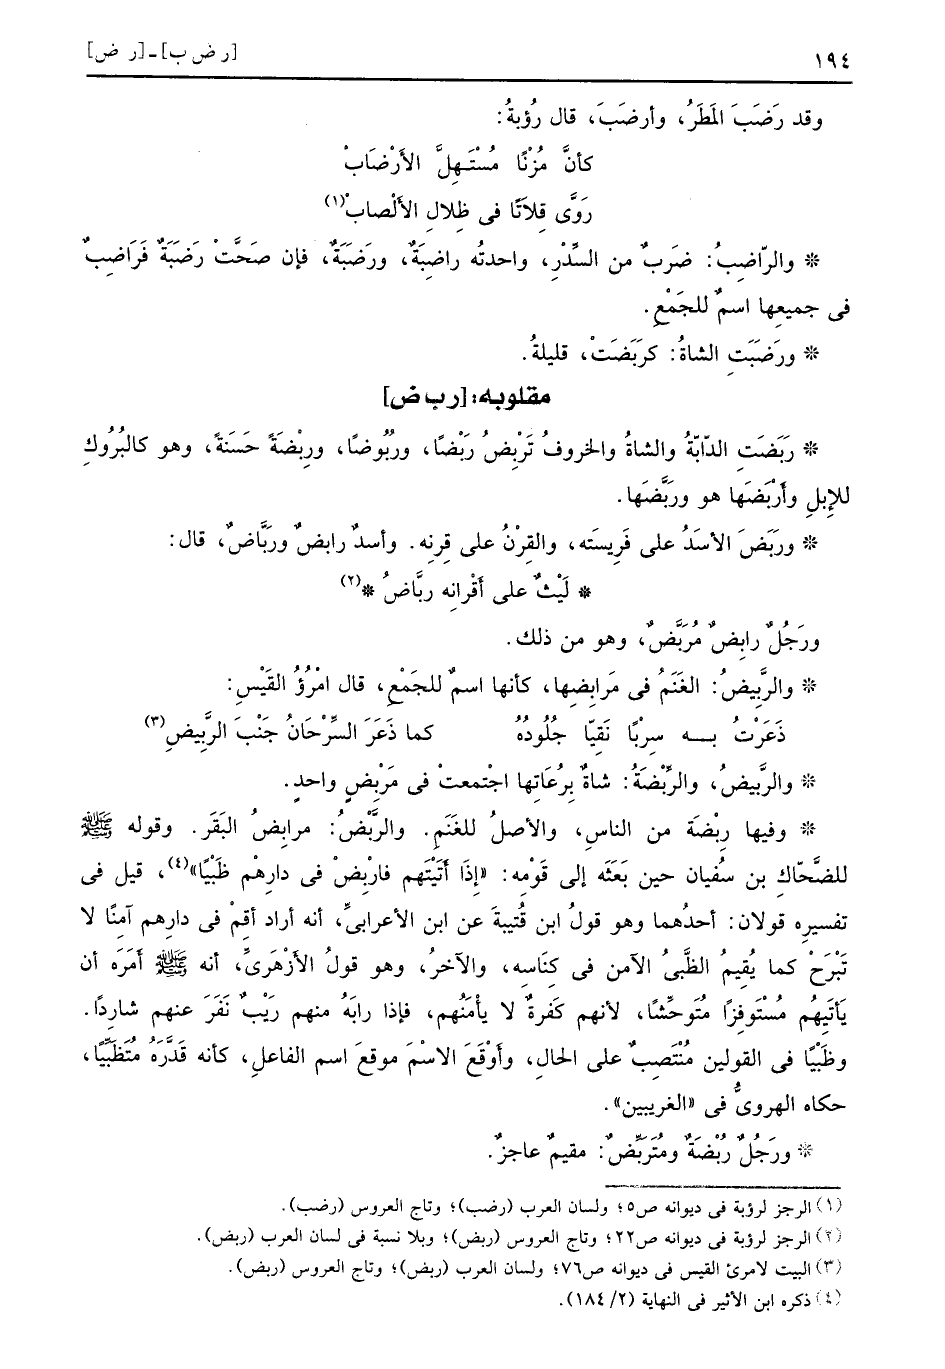 ١٩٤ [ر ض ب] ـ [ر ض]
وقد رَضَبَ المَطَرُ، وأرضَبَ، قال رُؤبةُ:
كأنَّ مُزْنًا مُسْتَهِلَّ الأَرْضَابْ
رَوَّى قِلاَتًا فى ظِلالِ الألْصابْ(١)
* والرّاضِبُ: ضَربٌ من السِّدْرِ، واحدتُه راضِبَةٌ، ورَضَبَةٌ، فإن صَحَّتْ رَضَبَةٌ فَرَاضِبٌ
فى جميعِها اسمٌ للجَمْعِ.
* ورَضَبَتِ الشاةُ: كرَبَضَتْ، قليلةُ.
مقلوبه: [ر ب ض]
* رَبَضَتِ الدّابّةُ والشاةُ والخروفُ تَرْبِضُ رَبْضًا، ورُبُوضًا، ورِبْضَةً حَسَنةً، وهو كالبُرُوكِ
للإبِلِ وأَرْبَضَها هو ورَبَّضَها.
* ورَبَضَ الأسَدُ على فَرِيستَه، والقِرْنُ على قِرنِه. وأسدٌ رابِضٌ ورَبَّاضٌ، قال:
* لَيْثٌ على أَقْرانِه ربَّاضُ *(٢)
ورَجُلٌ رابِضٌ مُرَبَّضٌ، وهو من ذلك.
* والرَّبيضُ: الغَنَمُ فى مَرابِضِها، كأنها اسمٌ للجَمْعِ، قال امْرُؤُ القَيْسِ:
ذَعَرْتُ بـه سِربًا نَقيّا جُلُودُهُ كما ذَعَرَ السِّرْحَانُ جَنْبَ الرَّبيضِ(٣)
* والرَّبيضُ، والرِّبْضَةُ: شاةٌ بِرُعَاتِها اجْتمعتْ فى مَرْبِضٍ واحدٍ.
* وفيها رِبْضَة من الناسِ، والأصلُ للغَنَمِ. والرَّبْضُ: مرابِضُ البَقَرِ. وقوله ﷺ
للضَّحّاكِ بن سفُيان حين بَعَثَه إلى قَوْمِه: «إذَا أتَيْتَهم فارْبِضْ فى دارِهمْ ظَبْيًا»(٤)، قيل فى
تفسيرِه قولان: أحدُهما وهو قولُ ابن قُتيبةَ عن ابن الأعرابىِّ، أنه أراد أقِمْ فى دارِهم آمنًا لا
تَبْرَحْ كما يُقِيمُ الظَّبىُ الآمن فى كِنَاسِه، والآخرُ، وهو قولُ الأزْهَرِىِّ، أنه ﷺ أمَرَه أن
يَأتِيَهُم مُسْتَوفِزًا مُتَوحِّشا، لأنهم كَفرةٌ لا يأْمَنُهم، فإذا رابَهُ منهم رَيْبٌ نَفَرَ عنهم شارِدًا.
وظَبْيًا فى القولين مُنْتَصِبٌ على الحالِ، وأوْقَعَ الاسْمَ موقعَ اسم الفاعلِ، كأنه قَدَّرَهُ مُتَظَبِّيًا،
حكاه الهروىُّ فى «الغريبين».
* ورَجُلٌ رُبْضَةٌ ومُتَرَبِّضٌ: مقيمٌ عاجزٌ.
(١) الرجز لرؤبة فى ديوانه ص٥؛ ولسان العرب (رضب)؛ وتاج العروس (رضب).
(٢) الرجز لرؤبة فى ديوانه ص٢٢؛ وتاج العروس (ربض)؛ وبلا نسبة فى لسان العرب (ربض).
(٣) البيت لامرئ القيس فى ديوانه ص٧٦؛ ولسان العرب (ربض)؛ وتاج العروس (ربض).
(٤) ذكره ابن الأثير فى النهاية (٢/ ١٨٤).